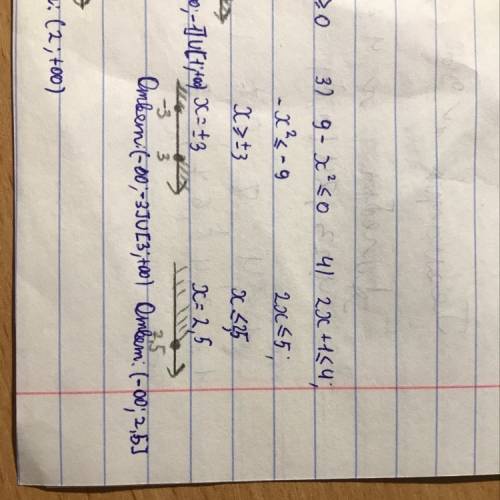 ≥0 3) 9 - x² ≤ 0 4) 2x + 1 ≤ 4;
- x² ≤ - 9 2x ≤ 5;
x ≥ ±3 x ≤ 2,5
∞; -1]U[1; +∞) x = ±3 x = 2,5
-3 3 2,5
Ответ: (-∞; -3]U[3; +∞) Ответ: (-∞; 2,5]
: (2; +∞)